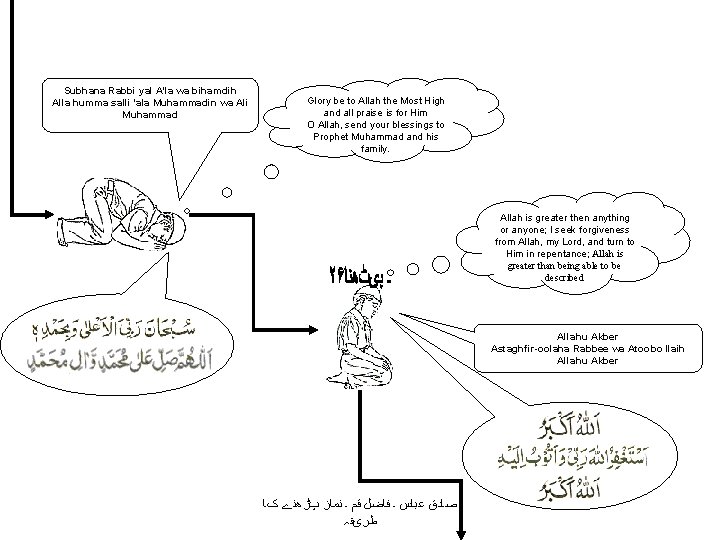 Subhana Rabbi yal A'la wa bihamdih
Alla humma salli 'ala Muhammadin wa Ali
Muhammad
Glory be to Allah the Most High
and all praise is for Him
O Allah, send your blessings to
Prophet Muhammad and his
family.
Allah is greater then anything
or anyone; I seek forgiveness
from Allah, my Lord, and turn to
Him in repentance; Allah is
greater than being able to be
described
سُبْحَانَ رَبِّيَ الْاَعْلٰى وَبِحَمْدِهٖ
اَللّٰهُمَّ صَلِّ عَلٰى مُحَمَّدٍ وَّاٰلِ مُحَمَّدٍ
Allahu Akber
Astaghfir-oolaha Rabbee wa Atoobo Ilaih
Allahu Akber
اَللّٰهُ اَكْبَرُ
اَسْتَغْفِرُ اللّٰهَ رَبِّيْ وَاَتُوْبُ اِلَيْهِ
اَللّٰهُ اَكْبَرُ
صادق عباس ـ فاضل قم ـ نماز پڑھنے کا
طریقہ